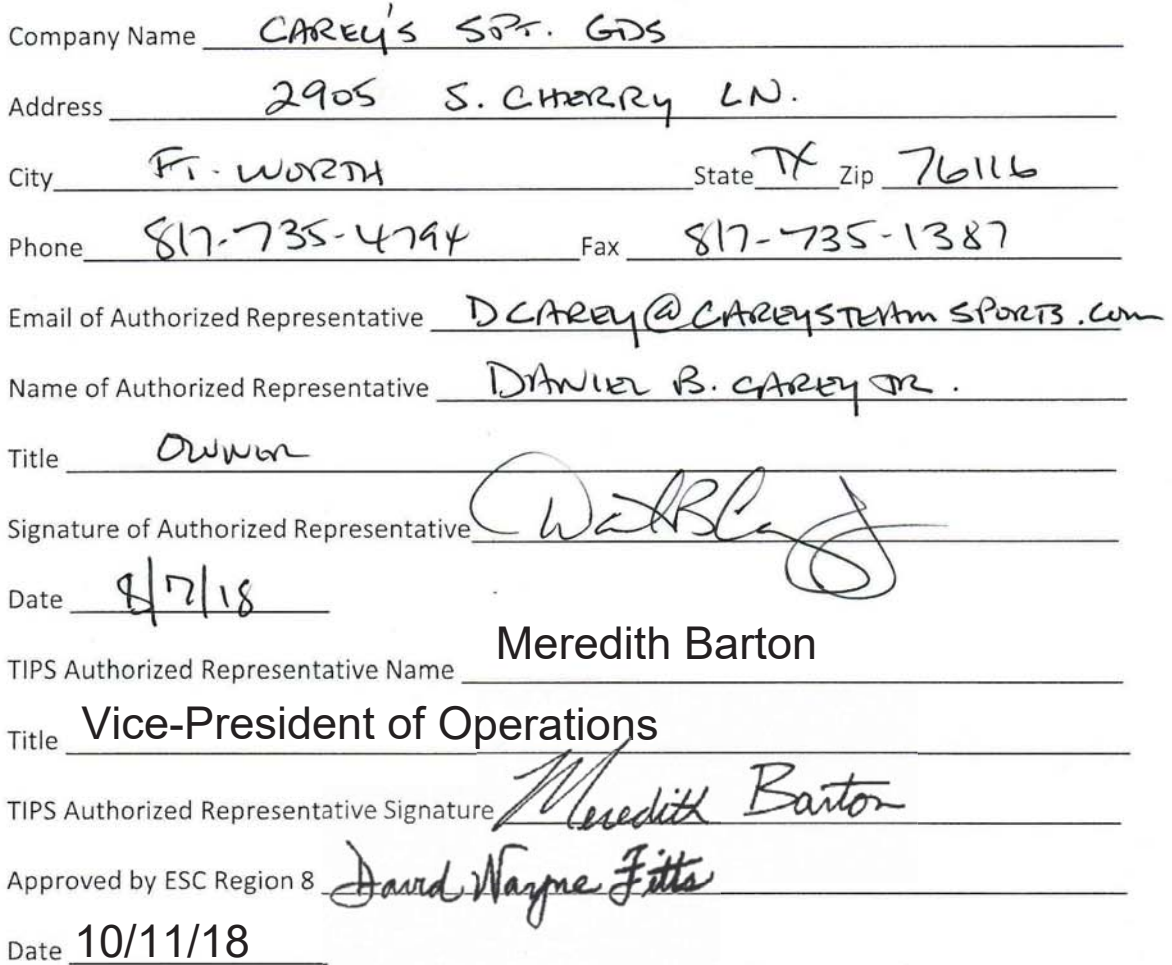 Company Name CAREY'S SPT. GDS
Address 2905 S. CHERRY LN.
City FT. WORTH State TX Zip 76116
Phone 817-735-4794 Fax 817-735-1387
Email of Authorized Representative DCAREY@CAREYSTEAMSPORTS.com
Name of Authorized Representative DANIEL B. CAREY JR.
Title OWNER
Signature of Authorized Representative
Date 8/7/18
Meredith Barton
TIPS Authorized Representative Name
Title Vice-President of Operations
TIPS Authorized Representative Signature Meredith Barton
Approved by ESC Region 8 David Wayne Fitts
Date 10/11/18